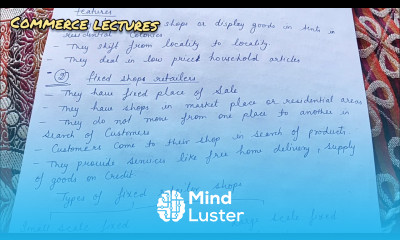 COMMERCE LECTURES
Features
shops or display goods in tents in
residential colonies
- They shift from locality to locality.
- They deal in low priced household articles
- (2) fixed shops retailers
- They have fixed place of sale
- They have shops in market place or residential areas
- They do not move from one place to another in
search of customers
- Customers come to their shop in search of products.
- They provide services like free home delivery, supply
of goods on credit.
Types of fixed shops
Small scale fixed scale fixed
Mind
Luster